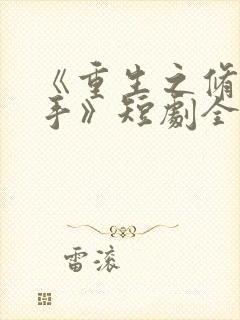 《重生之脩
手》短劇全
雷滚